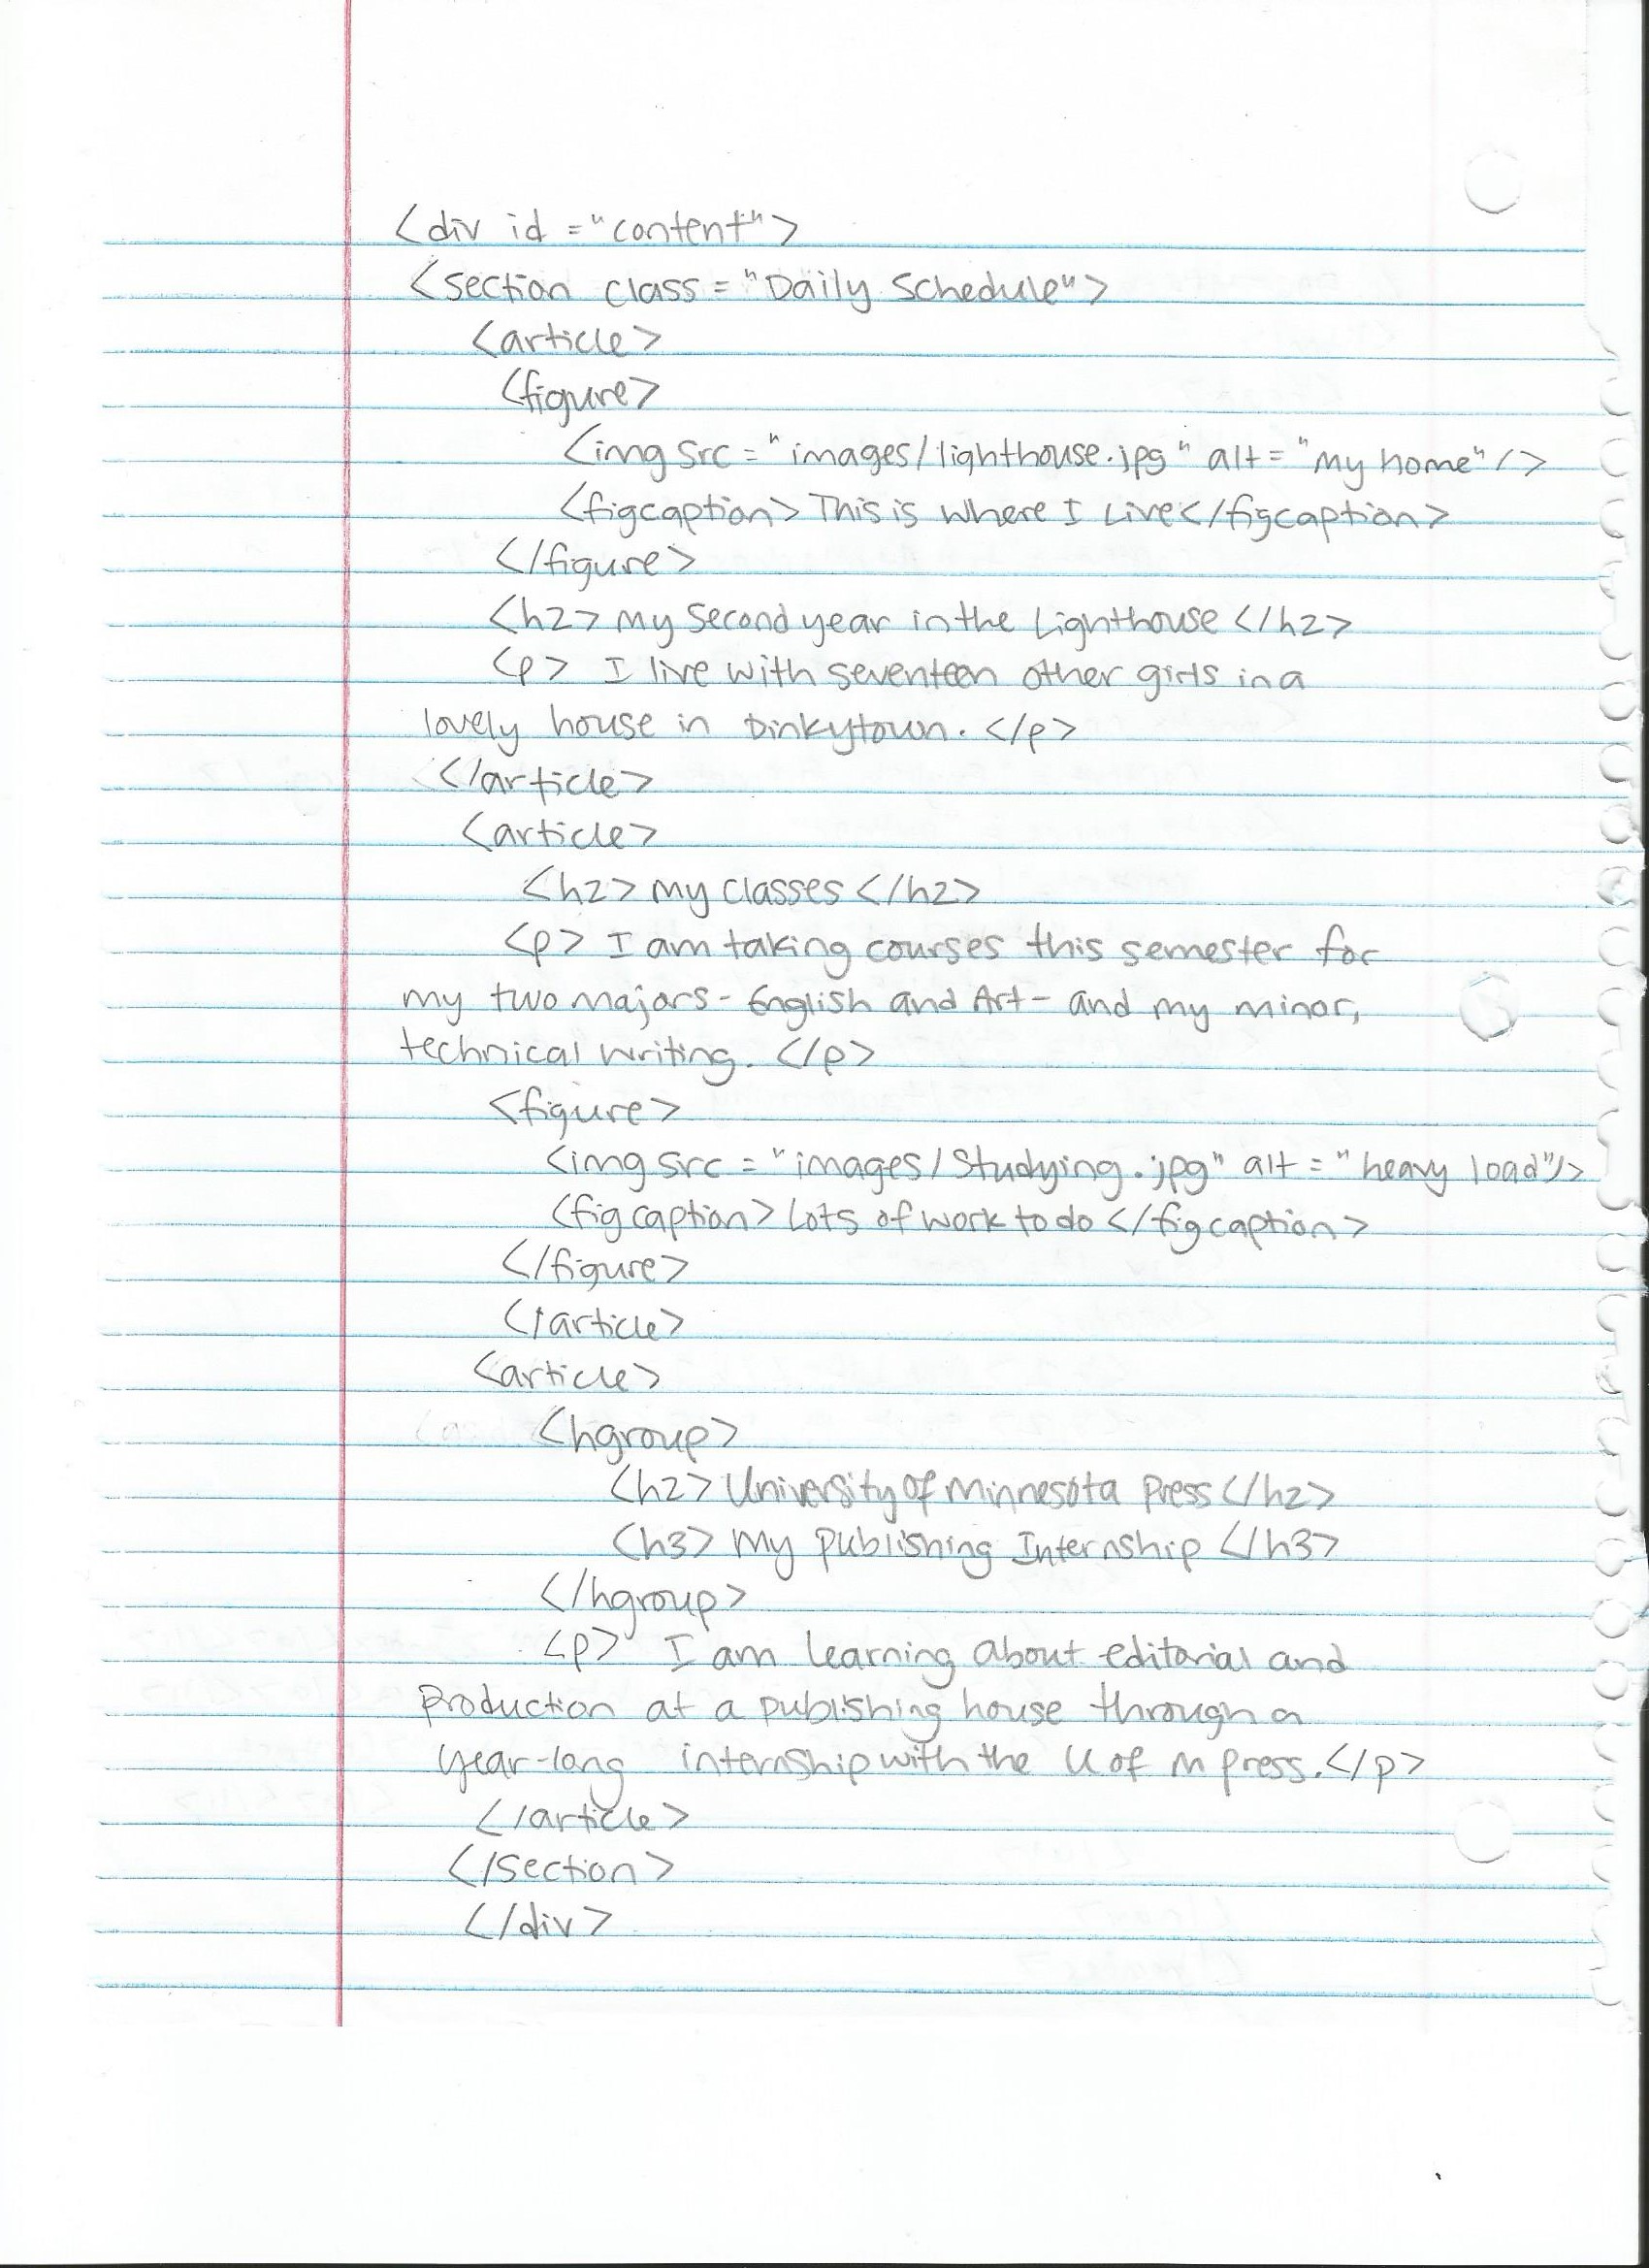 <div id="content">
<section class="Daily Schedule">
<article>
<figure>
<img src="images/lighthouse.jpg" alt="My home"/>
<figcaption>This is where I Live</figcaption>
</figure>
<h2>My Second year in the Lighthouse</h2>
<p> I live with seventeen other girls in a
lovely house in Dinkytown.</p>
</article>
<article>
<h2>My Classes</h2>
<p> I am taking courses this semester for
my two majors - English and Art - and my minor,
technical writing.</p>
<figure>
<img src="images/Studying.jpg" alt="heavy load"/>
<figcaption>Lots of work to do</figcaption>
</figure>
</article>
<article>
<hgroup>
<h2>University of Minnesota Press</h2>
<h3>My Publishing Internship</h3>
</hgroup>
<p> I am learning about editorial and
Production at a publishing house through a
year-long internship with the U of M Press.</p>
</article>
</section>
</div>